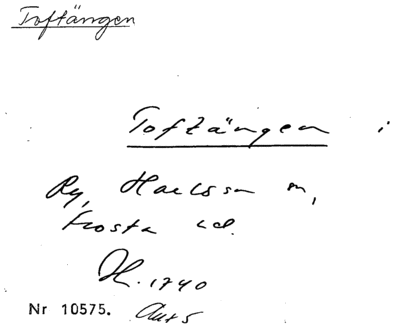 Toftängen
Toftängen i
Ry, Harlösa s,
Frosta hd.
H. 1740
Nr 10575.